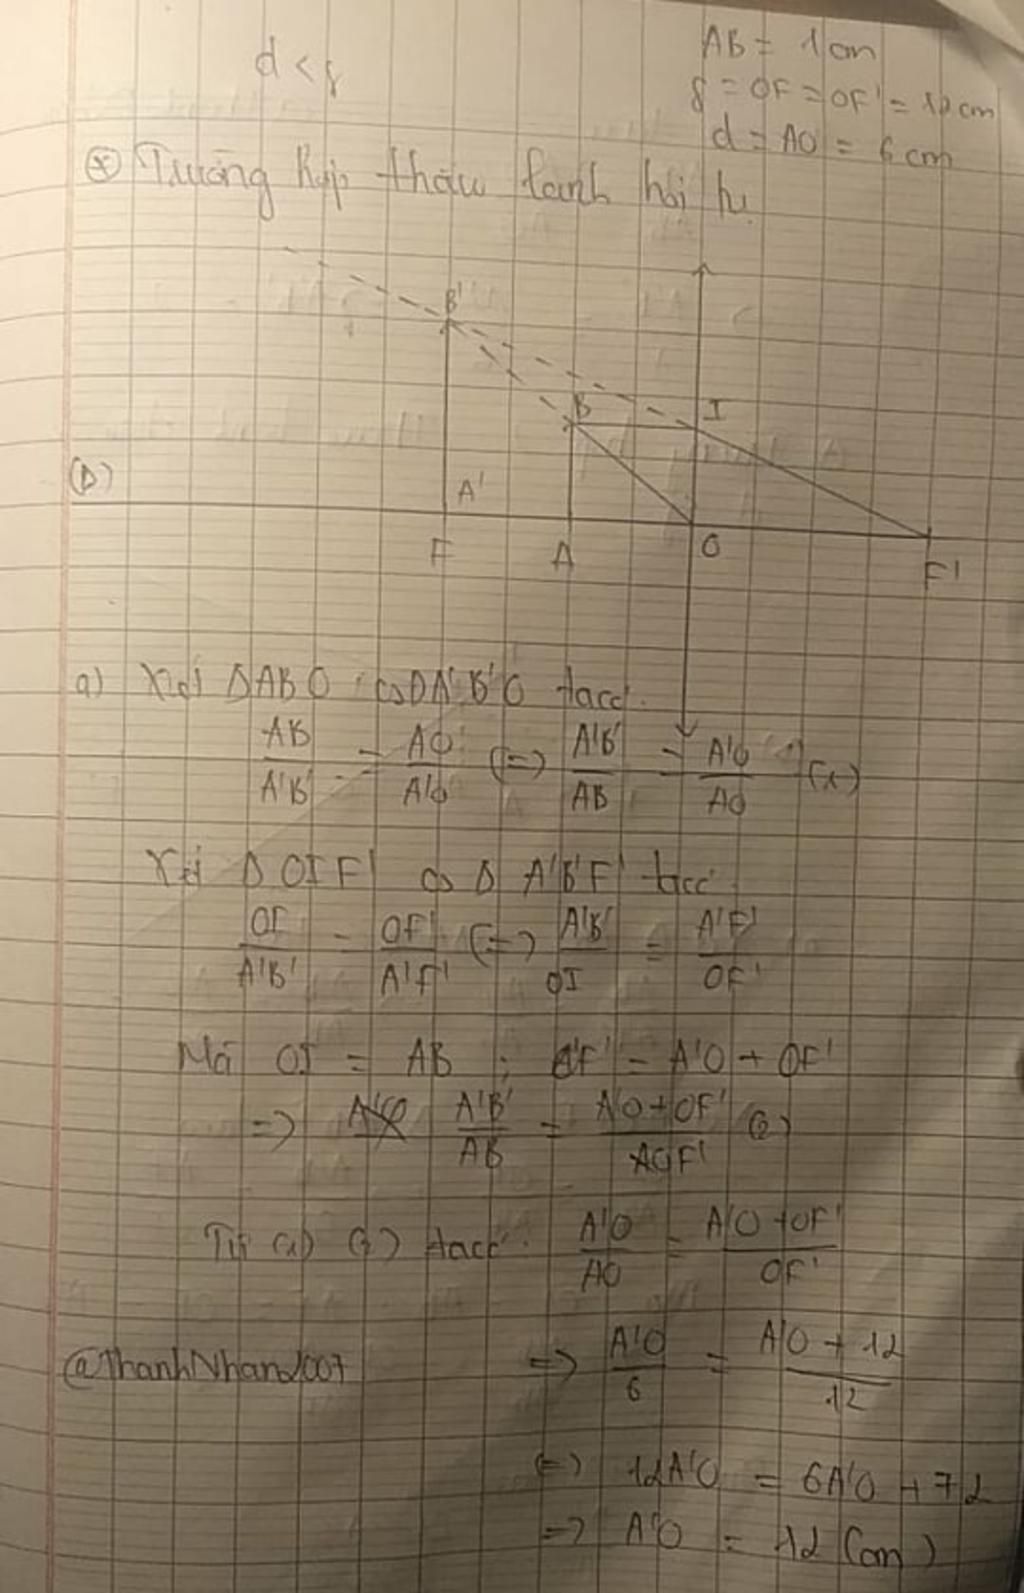 d < f
AB = 1 cm
f = OF = OF' = 12 cm
d = AO = 6 cm
* Trường hợp thấu kính hội tụ
B'
B I
(Δ)
A'
F A O F'
a) Xét ΔABO ∽ ΔA'B'O ta có
AB/A'B' = AO/A'O (=) A'B'/AB = A'O/AO (1)
Xét Δ OIF' ∽ Δ A'B'F' ta có
OI/A'B' = OF'/A'F' (=) A'B'/OI = A'F'/OF'
Mà OI = AB ; A'F' = A'O + OF'
=> A'B'/AB = A'O+OF'/OF' (2)
Từ (1) (2) ta có: A'O/AO = A'O+OF'/OF'
@ThanhNhan2007
=> A'O/6 = A'O + 12/12
(=) 12A'O = 6A'O + 72
=> A'O = 12 (cm)